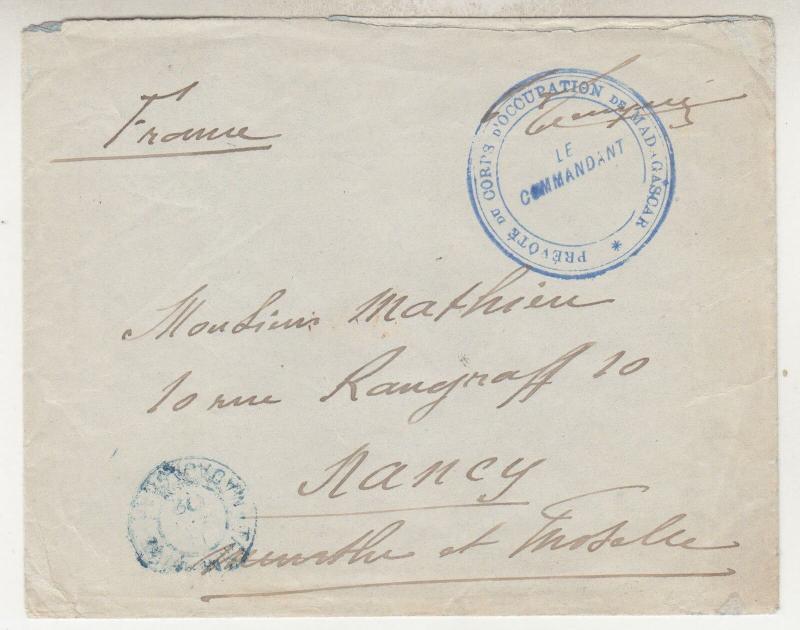 France
PRÉVÔTÉ DU CORPS D'OCCUPATION DE MADAGASCAR *
LE
COMMANDANT
Monsieur Mathieu
10 rueRaugraff 10
Nancy
Meurthe et Moselle